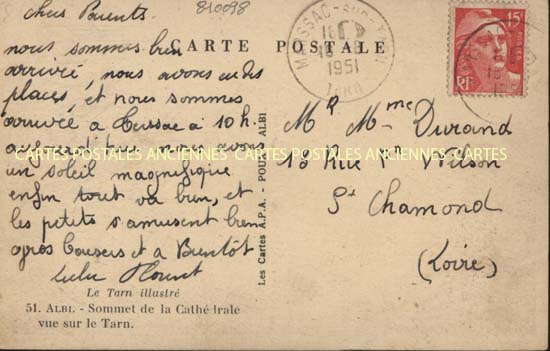 chers Parents
840098
nous sommes bien
arrivé, nous avons eu des
places, et nous sommes
arrivée à Cussac à 10 h.
aujourd'hui nous avons
un soleil magnifique
enfin tout va bien, et
les petits s'amusent bien
gros Baisers et a Bientôt
Lulu
CARTE POSTALE
1951
TARN
15F
RF
Mr Mme Durand
18 Rue Pt Wilson
St Chamond
(Loire)
Les Cartes A.P.A. - POUX, ALBI
CARTES POSTALES ANCIENNES CARTES POSTALES ANCIENNES CARTES
Le Tarn illustré
51. ALBI. - Sommet de la Cathédrale
vue sur le Tarn.